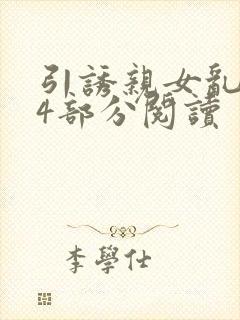 引誘親女亂
4部分閱讀
李學仕